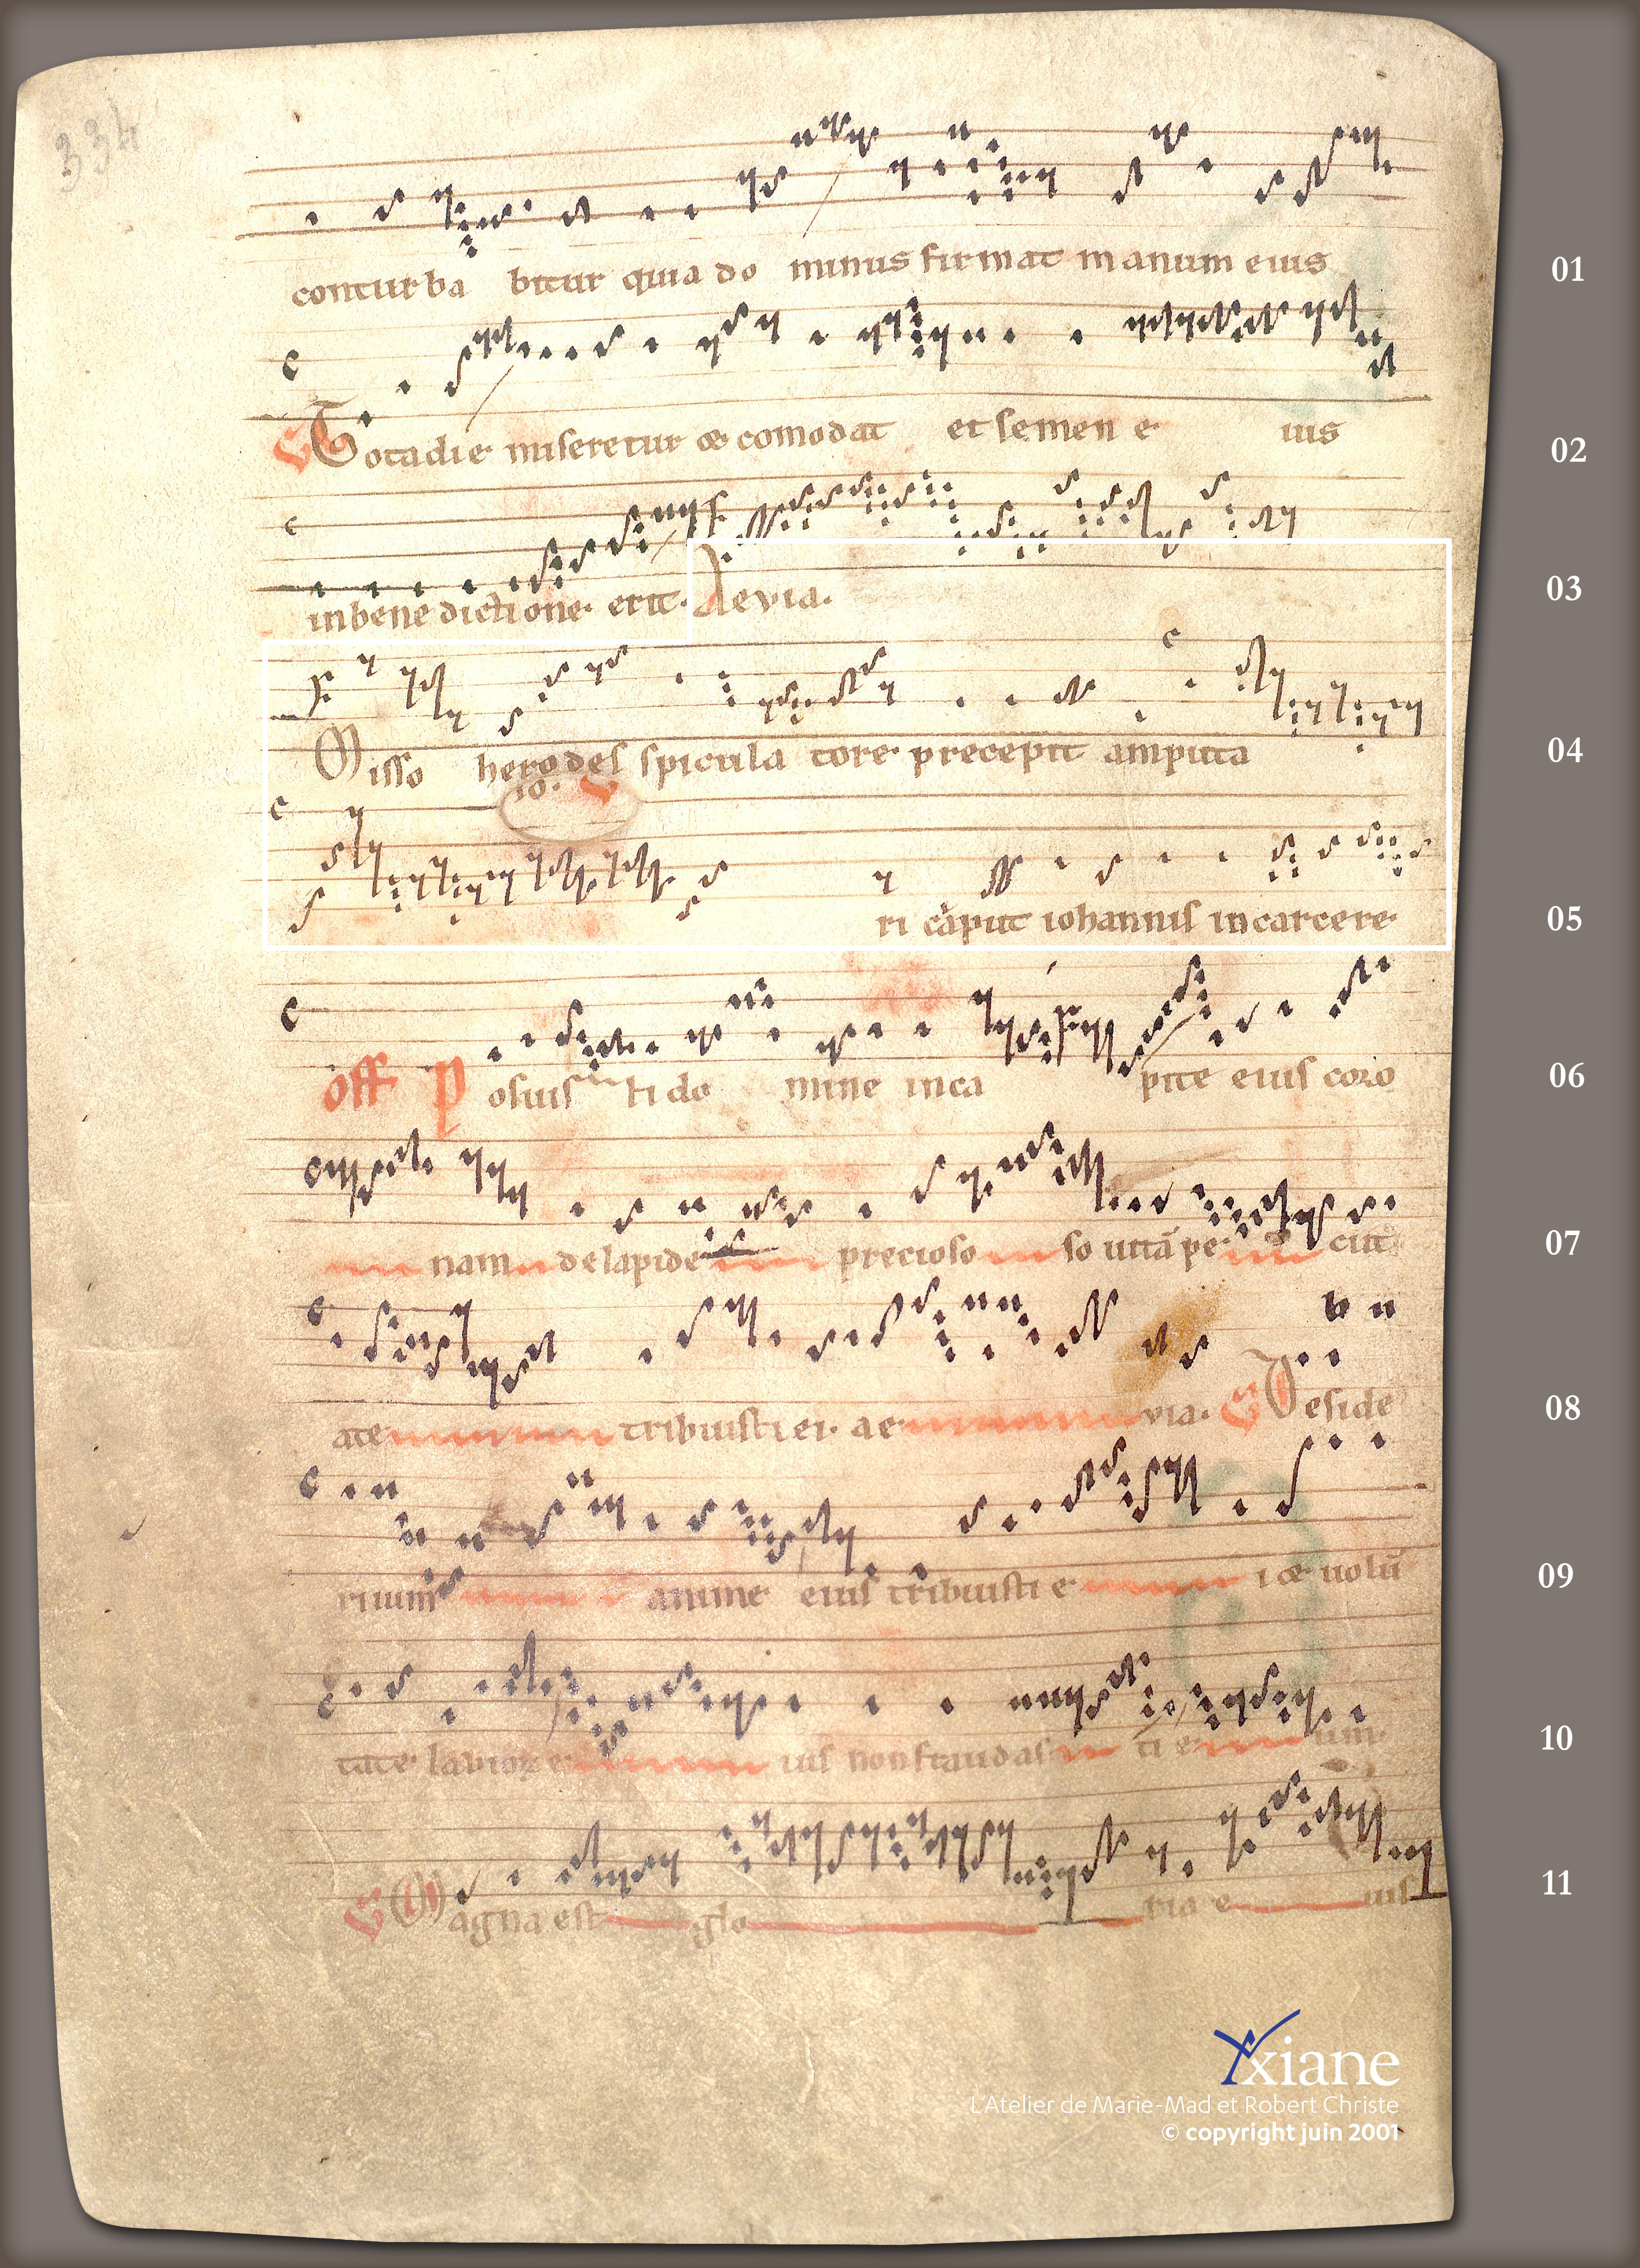 334
conturba bitur quia do minus firmat manum eius 01
Tota die miseretur & comodat et semen e ius 02
in benedictione. erit. Aevia. 03
Misso herodes spicula tore precepit amputa 04
io. V
ri caput iohannis in carcere 05
off Posuis ti do mine in ca pite eius coro 06
nam de lapide precioso so uitā pe ciit 07
ate tribuisti ei. ae via. V Deside 08
rium anime eius tribuisti e i & uolū 09
tate labior e ius non fraudas ti e um 10
V Magna est glo ria e ius 11
Yxiane
L'Atelier de Marie-Mad et Robert Christe
© copyright juin 2001